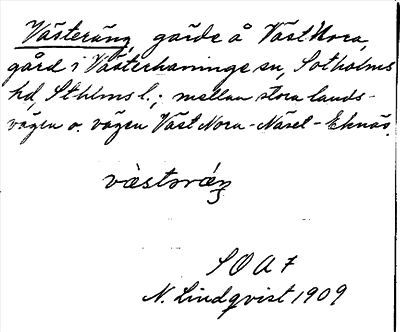 Västeräng, gärde å Väst Nora,
gård i Västerhaninge sn, Sotholms
hd, Sthlms l.; mellan stora lands-
vägen o. vägen Väst Nora - Näsel - Eknäs.
västəräŋ
SOA 7
N. Lindqvist 1909